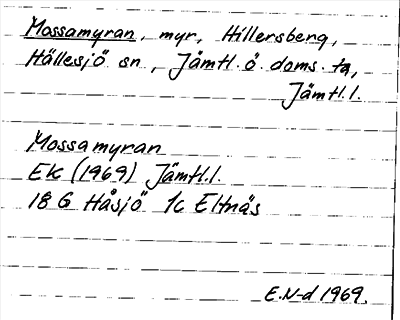 Mossamyran, myr, Hillersberg,
Hällesjö sn, Jämtl. ö. doms. ta,
Jämtl.l.
Mossamyran
EK (1969) Jämtl.l.
18 G Håsjö 1c Eltnäs
E.N-d 1969.